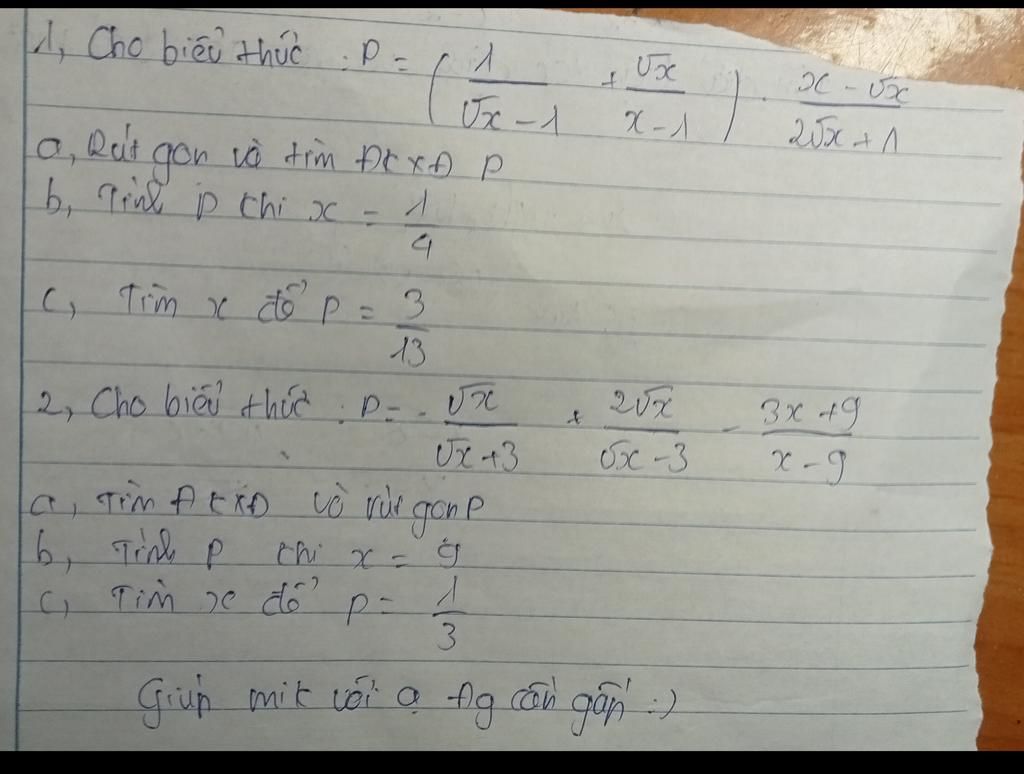 1, Cho biểu thức : P = ( 1/(√x - 1) + √x/(x - 1) ) . (x - √x)/(2√x + 1)
a, Rút gọn và tìm ĐKXĐ P
b, Tính P khi x = 1/4
c, Tìm x để P = 3/13
2, Cho biểu thức : P = √x/(√x + 3) + 2√x/(√x - 3) - (3x + 9)/(x - 9)
a, Tìm ĐKXĐ và rút gọn P
b, Tính P khi x = 9
c, Tìm x để P = 1/3
Giúp mik với ạ đg cần gấp :)